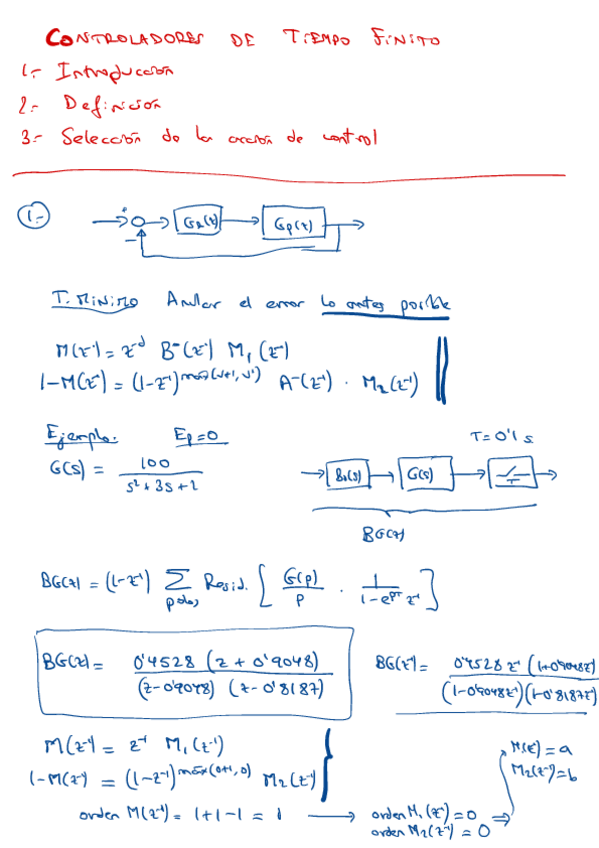 CONTROLADORES DE TIEMPO FINITO
1.- Introducción
2.- Definición
3.- Selección de la acción de control
1.-
+
-
GR(z)
Gp(z)
T. Mínimo Anular el error lo antes posible
M(z⁻¹) = z⁻ᵈ B⁻(z⁻¹) M₁(z⁻¹)
1-M(z⁻¹) = (1-z⁻¹)^máx(v+1, v') A⁻(z⁻¹) · M₂(z⁻¹)
Ejemplo. Ep=0
T=0'1 s
G(s) = 100 / (s²+3s+2)
B₀(s)
G(s)
T
BG(z)
BG(z) = (1-z⁻¹) Σ polos Resid. [ G(p)/p · 1/(1-e^pT z⁻¹) ]
BG(z) = 0'4528 (z+0'9048) / (z-0'9048) (z-0'8187)
BG(z⁻¹) = 0'4528 z⁻¹ (1+0'9048z⁻¹) / (1-0'9048z⁻¹)(1-0'8187z⁻¹)
M(z⁻¹) = z⁻¹ M₁(z⁻¹)
1-M(z⁻¹) = (1-z⁻¹)^máx(0+1,0) M₂(z⁻¹)
M₁(z⁻¹) = a
M₂(z⁻¹) = b
orden M(z⁻¹) = 1+1-1 = 1 → orden M₁(z⁻¹) = 0 ⇒
orden M₂(z⁻¹) = 0